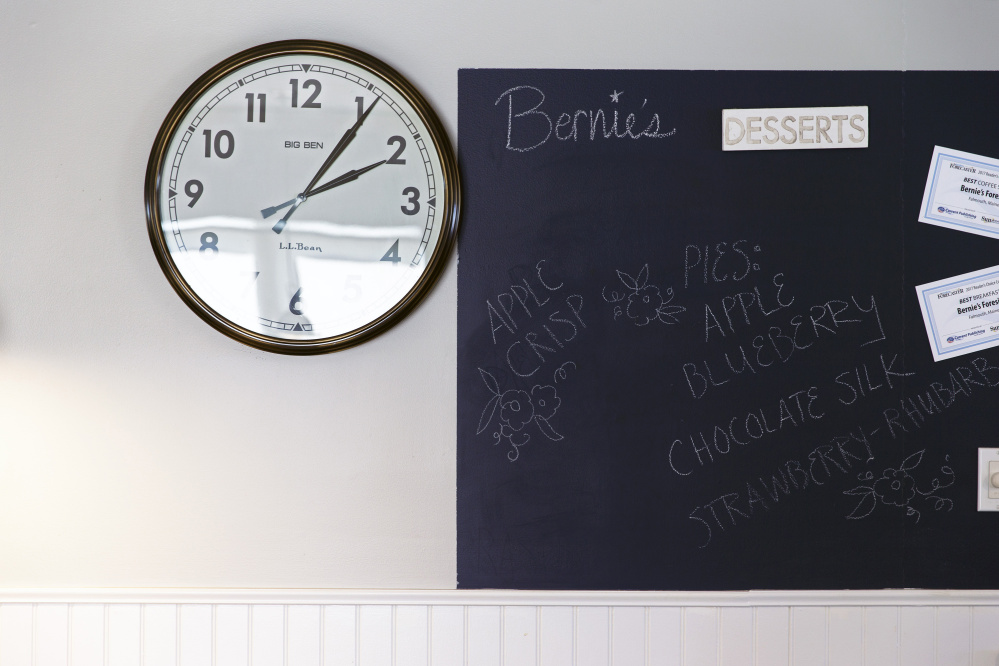 12
11
1
10
2
BIG BEN
9
3
8
4
L.L.Bean
7
5
6
Bernie's
DESSERTS
BEST COFFEE
Bernie's Fores
Falmouth, Maine
Current Publishing
Sun
BEST BREAKFAST
Bernie's Forest
Falmouth, Maine
Current Publishing
Sun
APPLE
CRISP
PIES:
APPLE
BLUEBERRY
CHOCOLATE SILK
STRAWBERRY-RHUBARB